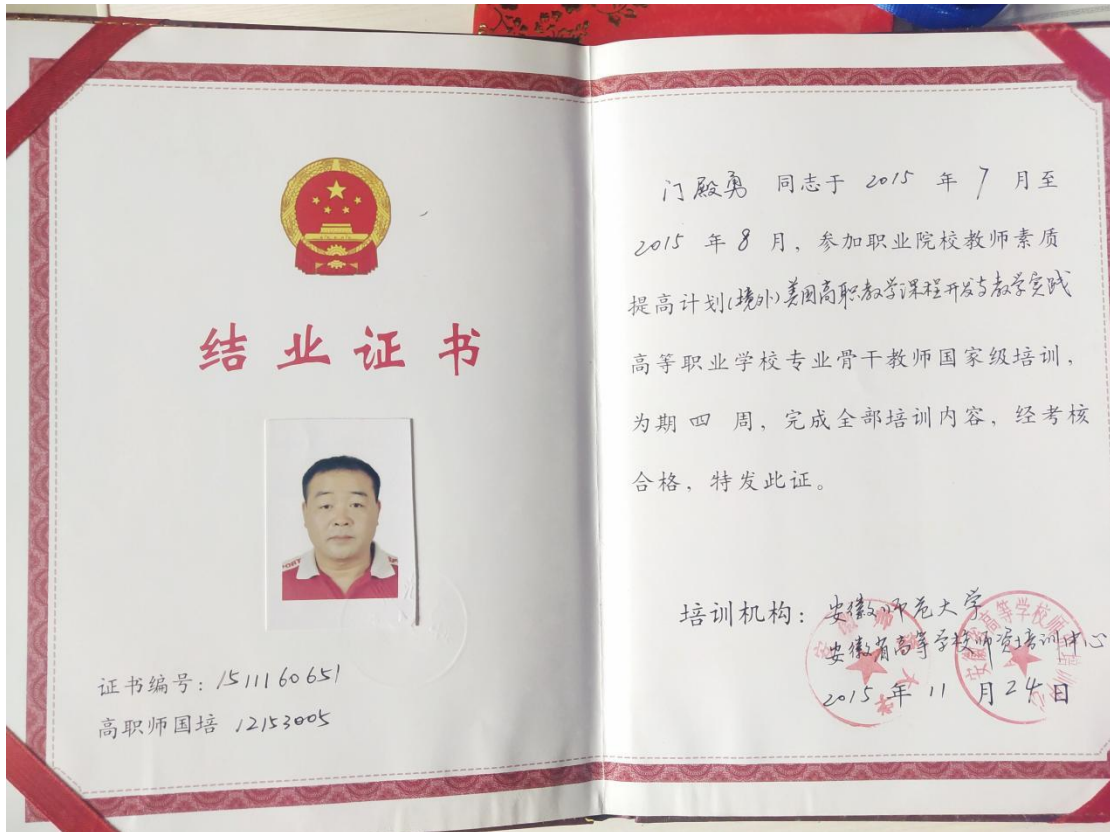 结业证书
证书编号：1511160651
高职师国培 12153005
门殿勇 同志于 2015 年 7 月至
2015 年 8 月，参加职业院校教师素质
提高计划(境外)美国高职教学课程开发与教学实践
高等职业学校专业骨干教师国家级培训，
为期 四 周，完成全部培训内容，经考核
合格，特发此证。
培训机构：安徽师范大学
安徽省高等学校师资培训中心
2015 年 11 月 24 日